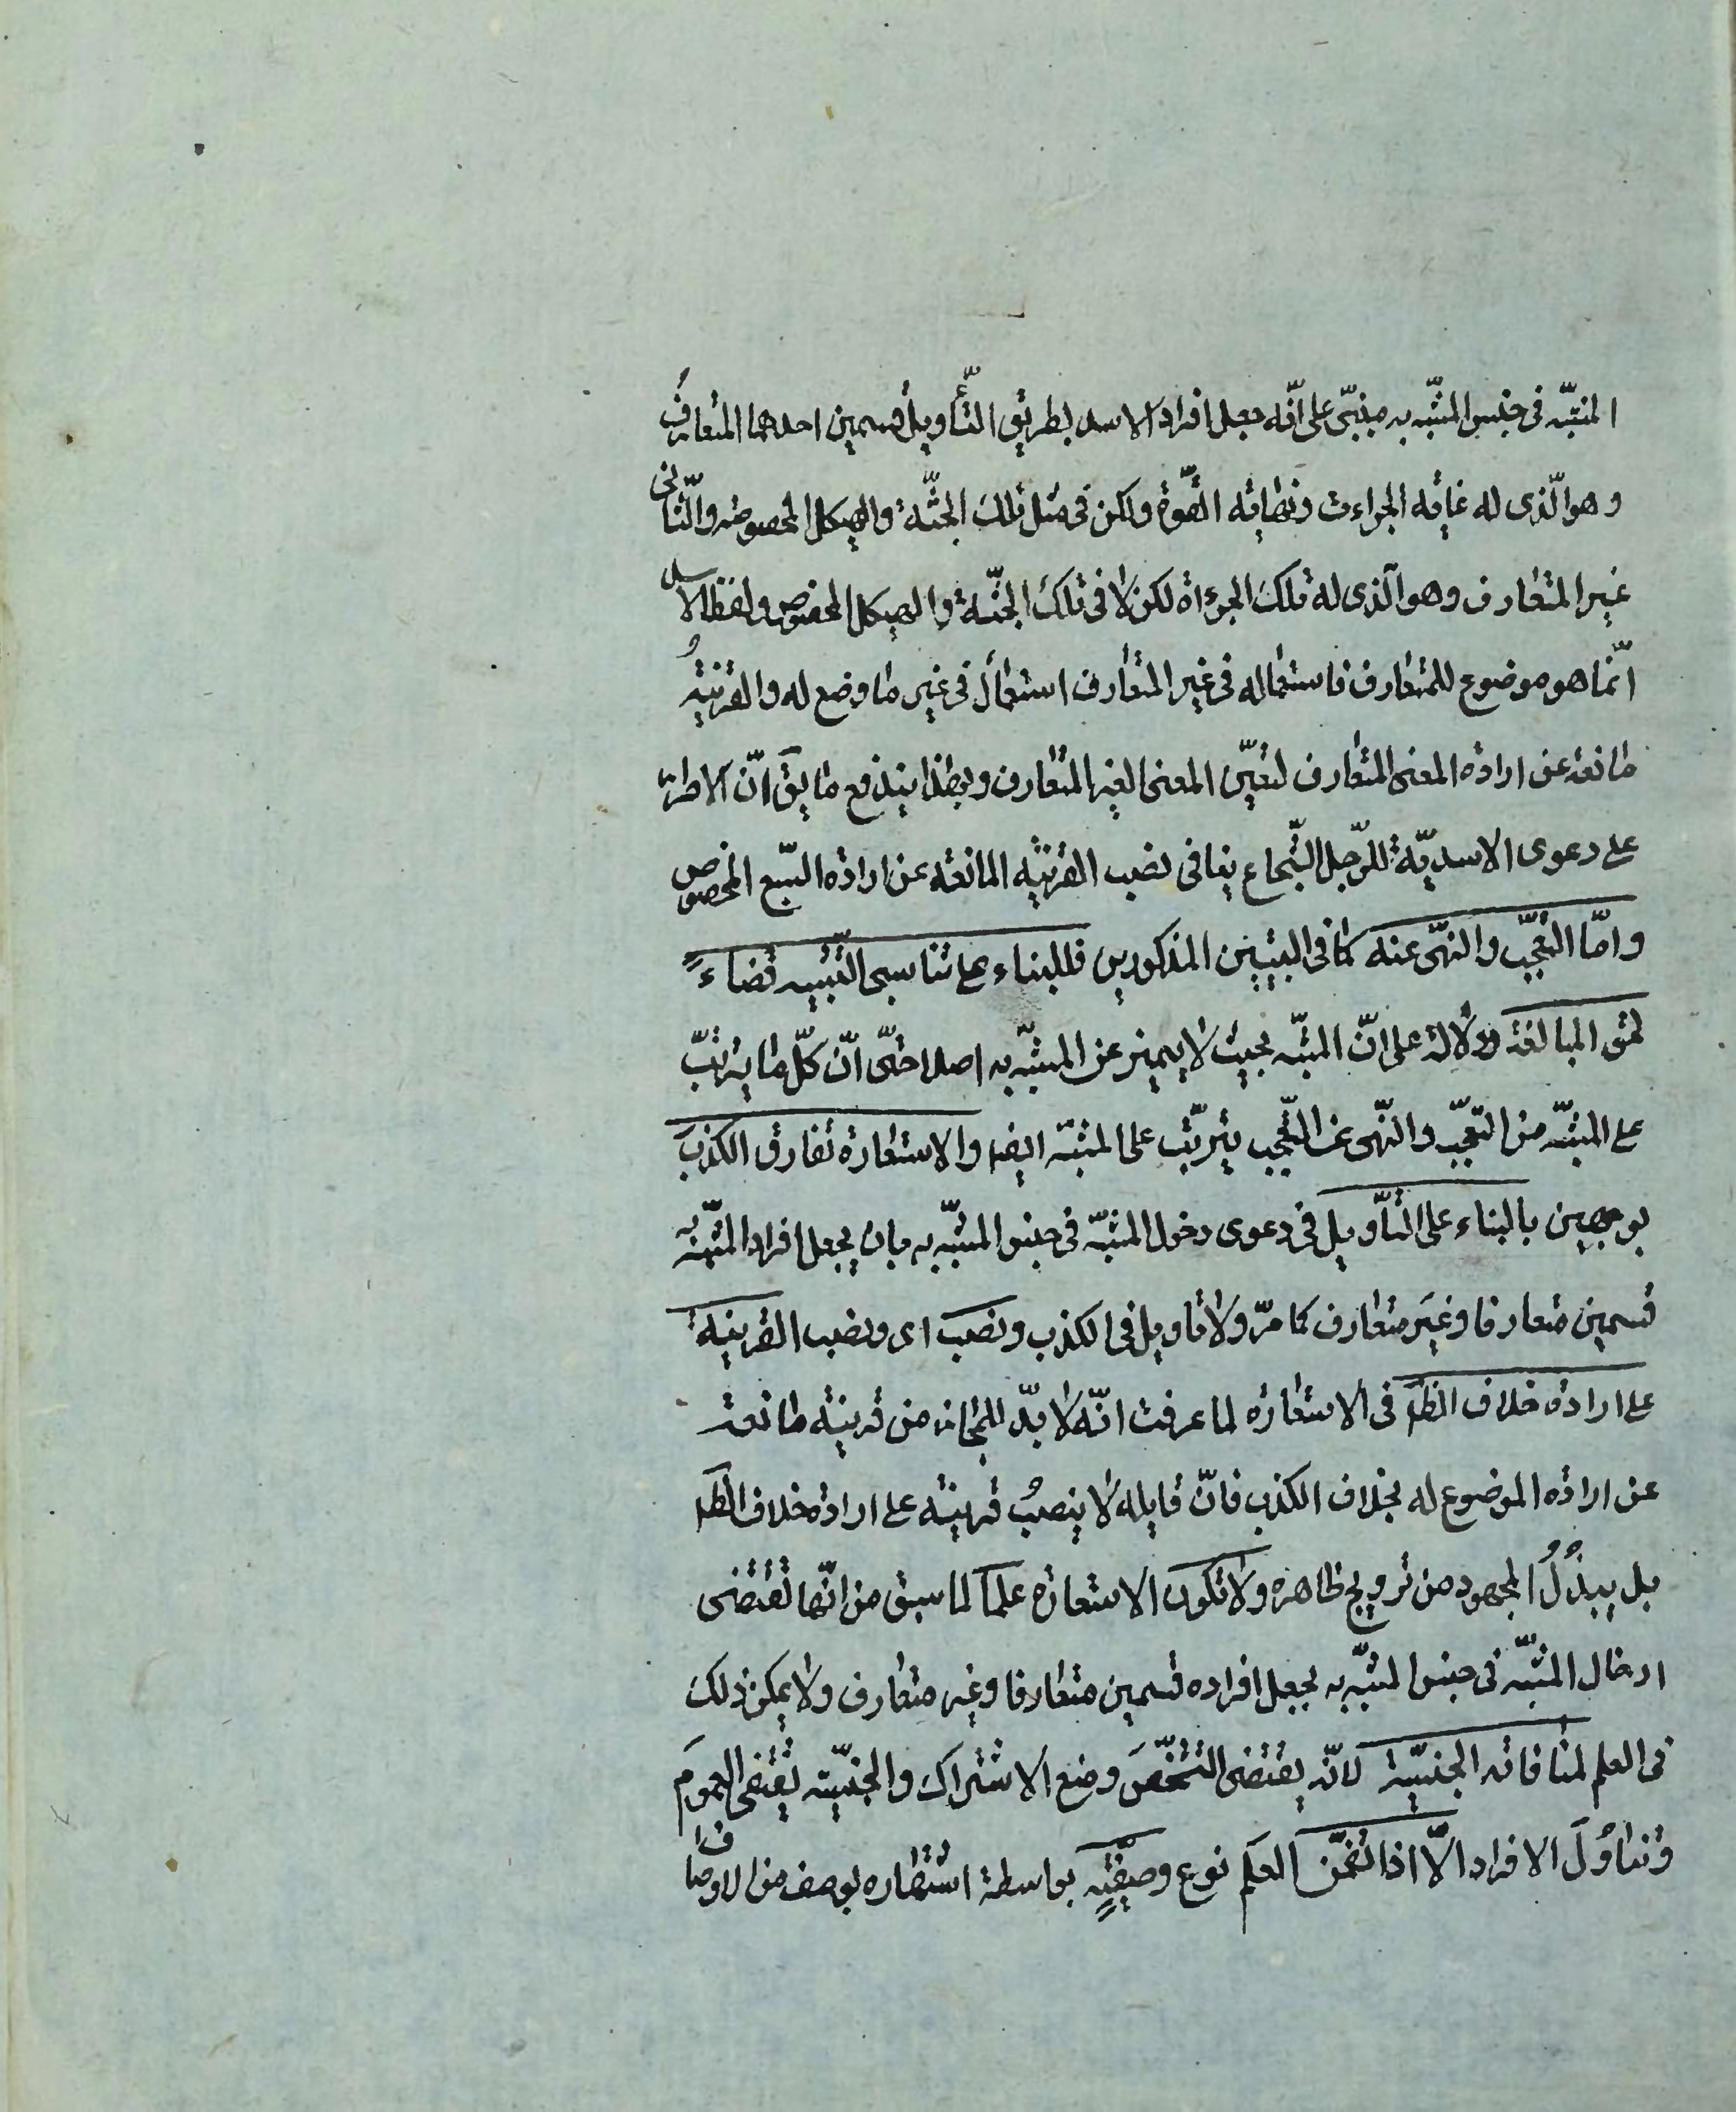 المشبّه فى جنس المشبّه به مبنىّ على انّه جعل افراد الاسد بطريق التّأويل قسمين احدهما المتعارف
وهو الّذى له غاية الجراءت ونهاية القوّة ولكن فى مثل تلك الجثّة والهيكل المخصوصه والثّانى
غير المتعارف وهو الّذى له تلك الجرءاة لكن لا فى تلك الجثّة والهيكل المخصوص ولفظ الاسد
انّما هو موضوع للمتعارف فاستعماله فى غير المتعارف استعمال فى غير ما وضع له والقرينة
مانعة عن ارادة المعنى المتعارف لتعيّن المعنى الغير المتعارف وبهذا يندفع ما يق انّ الاصرار
على دعوى الاسديّة للرّجل الشّجاع ينافى نصب القرينة المانعة عن ارادة السّبع المخصوص
وامّا التّعجّب والنّهى عنه كما فى البيتين المذكورين فللبناء على تناسى التّشبيه قضاءً
لحق المبالغة ودلالة على انّ المشبّه بحيث لا يميز عن المشبّه به اصلا حتّى انّ كلّ ما يترتّب
على المشبّه من التعجّب والنّهى عن التّعجّب يترتّب على المشبّه ايضا والاستعارة تفارق الكذب
بوجهين بالبناء على التّأويل فى دعوى دخول المشبّه فى جنس المشبّه به بان يجعل افراد المشبّه به
قسمين متعارفا وغير متعارف كما مرّ ولا تاويل فى الكذب ونصب اى وبنصب القرينة
على ارادة خلاف الظّ فى الاستعاره لما عرفت انّه لا بدّ للمجاز من قرينة مانعة
عن ارادة الموضوع له بخلاف الكذب فانّ قايله لا ينصب قرينة على ارادة خلاف الظ
بل يبذُلُ المجهود من ترويج ظاهره ولا تكون الاستعارة علماً لما سبق من انّها تقتضى
ادخال المشبّه فى جنس المشبّه به بجعل افراده قسمين متعارفا وغير متعارف ولا يمكن ذلك
فى العلم لمنافاته الجنسيّة لانّه يقتضى التّشخّص ومنع الاشتراك والجنسيّة تقتضى العموم
وتناوُلَ الافراد الّا اذا تضمّن العلَم نوع وصفيّةٍ بواسطة اشتهاره بوصف من الاوصاف